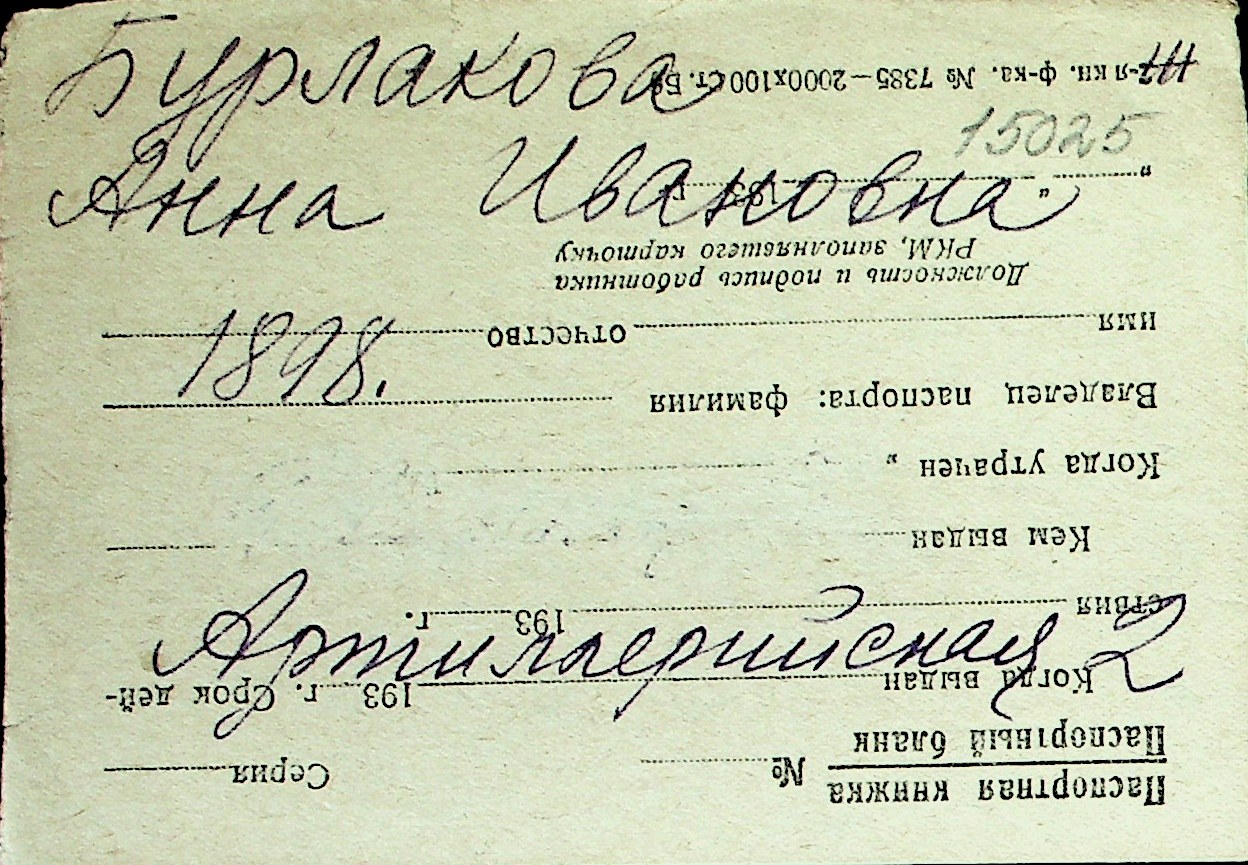 Бурлакова
Анна Ивановна
1898.
Артиллерийская 2
15025
Паспортная книжка
Паспортный бланк
№ Серия
Когда выдан 193 г. Срок дей-
ствия 193 г.
Кем выдан
Когда утрачен "
Владелец паспорта: фамилия
имя отчество
Должность и подпись работника
РКМ, заполнявшего карточку
" " 193 г.
ф-ка. № 7385—2000х100